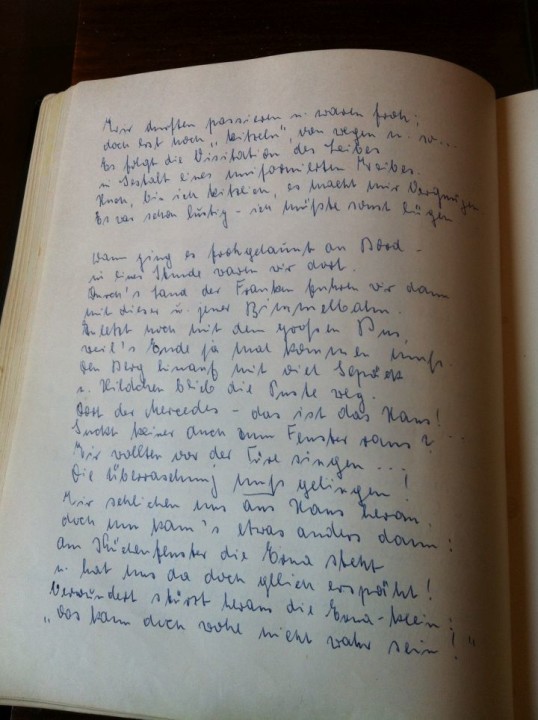 Wir durften passieren u. waren froh;
doch erst noch „kitzeln", von wegen u. so...
Es folgt die Visitation des Leibes
in Gestalt eines uniformierten Weibes.
Huch, bin ich kitzlich, es macht mir Vergnügen
Es war schon lustig - ich müßte sonst lügen
Dann ging es frohgelaunt an Bord -
in einer Stunde waren wir dort.
Durch's Land der Franken fuhren wir dann
mit dieser u. jener Bimmelbahn.
Zuletzt noch mit dem großen Bus,
weil's Ende ja mal kommen muß.
Den Berg hinauf mit viel Gepäck
u. Hildchen blieb die Puste weg.
Dort der Mercedes - das ist das Haus!
Guckt keiner auch zum Fenster raus? ...
Wir wollten vor der Türe singen ...!
Die Überraschung muß gelingen!
Wir schlichen uns ans Haus heran,
doch nun kam's etwas anders dann:
Am Küchenfenster die Erna steht
u. hat uns da doch gleich erspäht!
Verwundert stürzt heraus die Erna-klein:
„Das kann doch wohl nicht wahr sein!"